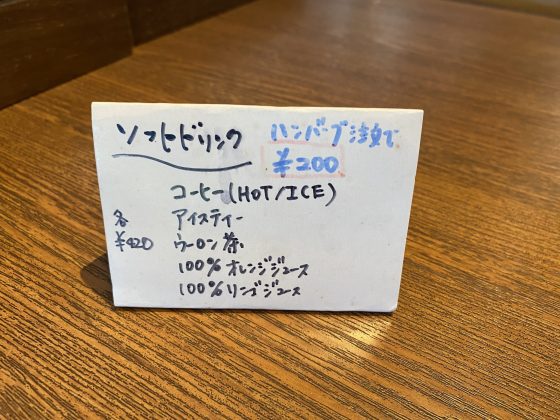 ソフトドリンク
ハンバーグ注文で
¥200
コーヒー(HOT/ICE)
各 アイスティー
¥420 ウーロン茶
100%オレンジジュース
100%リンゴジュース